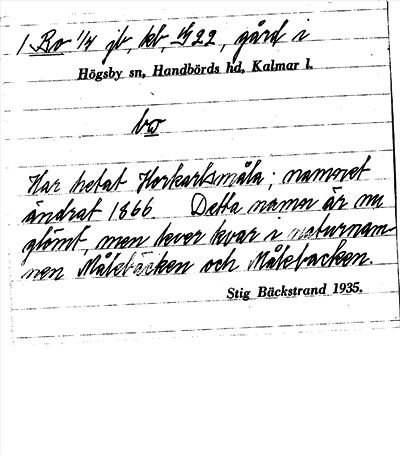 1 Bo 1/4 jb, kb, GS22, gård i
Högsby sn, Handbörds hd, Kalmar l.
bω
Har hetat Horkarlsmåla; namnet
ändrat 1866 Detta namn är nu
glömt, men lever kvar i naturnam-
nen Målebäcken och Målebacken.
Stig Bäckstrand 1935.